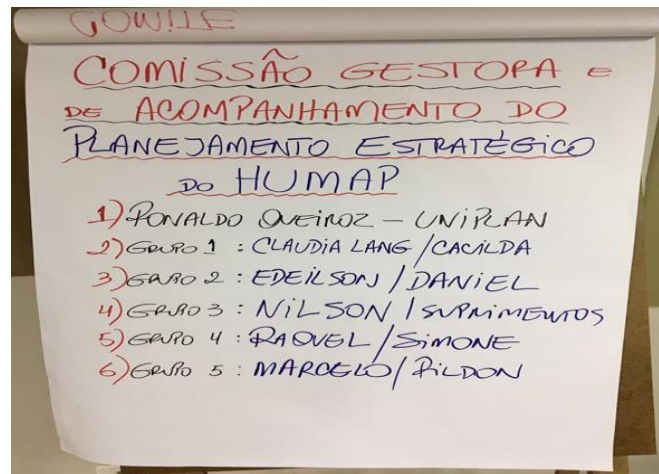 COMISSÃO GESTORA E
DE ACOMPANHAMENTO DO
PLANEJAMENTO ESTRATÉGICO
DO HUMAP
1) RONALDO QUEIROZ – UNIPLAN
2) GRUPO 1 : CLAUDIA LANG / CACILDA
3) GRUPO 2 : EDEILSON / DANIEL
4) GRUPO 3 : NILSON / SUPRIMENTOS
5) GRUPO 4 : RAQUEL / SIMONE
6) GRUPO 5 : MARCELO / RILDON